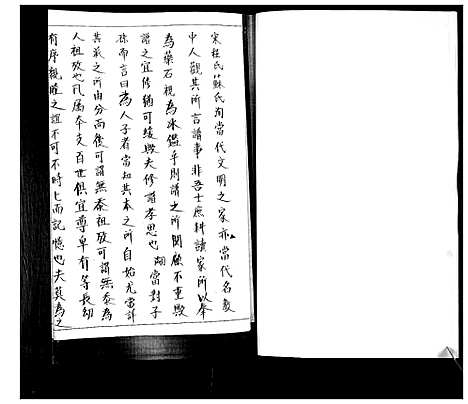 宋程氏蘇氏洵當代文明之家亦當代名教
中人觀其所言譜事非吾士庶科讀家所以奉
為藥石視為冰鑑乎則譜之所関顧不重歟
譜之宜修猶可緩歟夫修譜孝思也 湖當對子
孫而言曰為人子者當知其本之所自始尤當詳
其派之所由分而後可謂無忝祖攷可謂無忝為
人祖攷也凡屬本支百世俱宜尊卑有等長幼
有序親睦之誼不可不時乀而記憶也夫莫為之